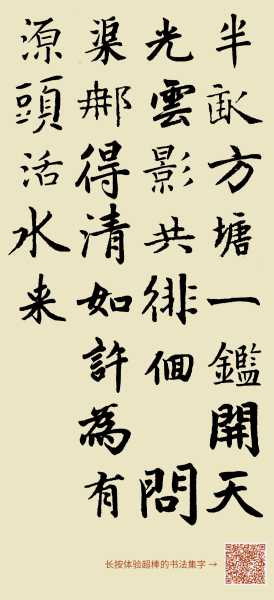 半畝方塘一鑑開天
光雲影共徘佪問
渠那得清如許為有
源頭活水来
长按体验超棒的书法集字 →